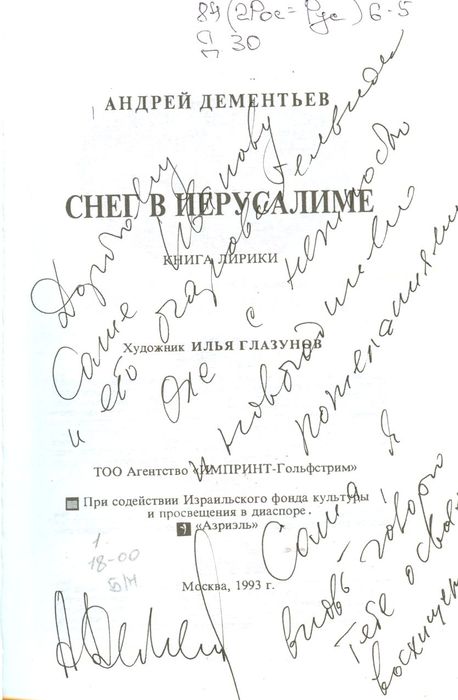 84(2Рос=Рус)6-5
30
АНДРЕЙ ДЕМЕНТЬЕВ
СНЕГ В ИЕРУСАЛИМЕ
КНИГА ЛИРИКИ
Художник ИЛЬЯ ГЛАЗУНОВ
ТОО Агентство «ИМПРИНТ-Гольфстрим»
При содействии Израильского фонда культуры
и просвещения в диаспоре.
«Азриэль»
Москва, 1993 г.
1
18-00
Б/Н
Дорогому
Саше Иванову
и его очаровательной
Оле с нежностью
и новогодними
пожеланиями
Саша, я
вновь говорю
тебе о своём
восхищен